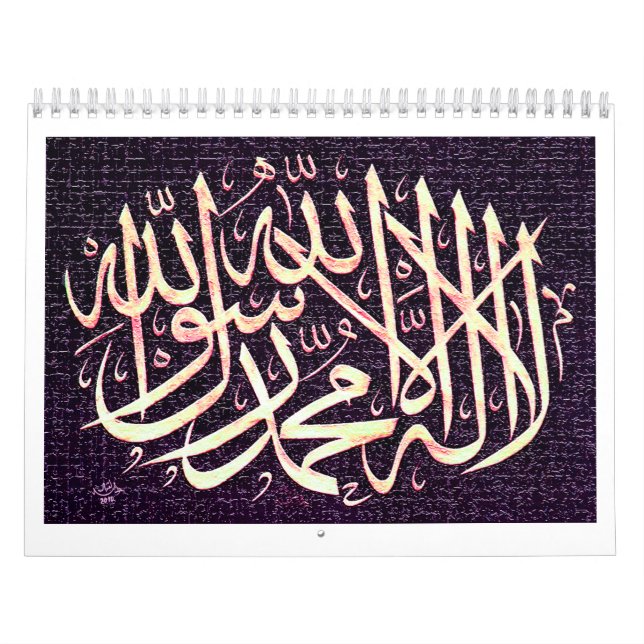 لا إله إلا الله محمد رسول الله
2012